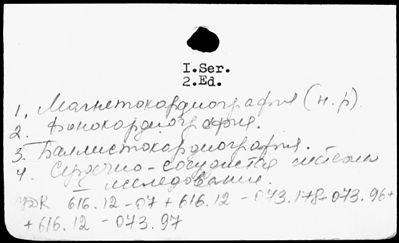 I.Ser.
2.Ed.
1. Магнетокардиография (н.р).
2. Фонокардиография.
3. Баллистокардиография.
4. Сердечно-сосудистая система
исследование.
616.12-07+616.12-073.178-073.96+
+616.12-073.97